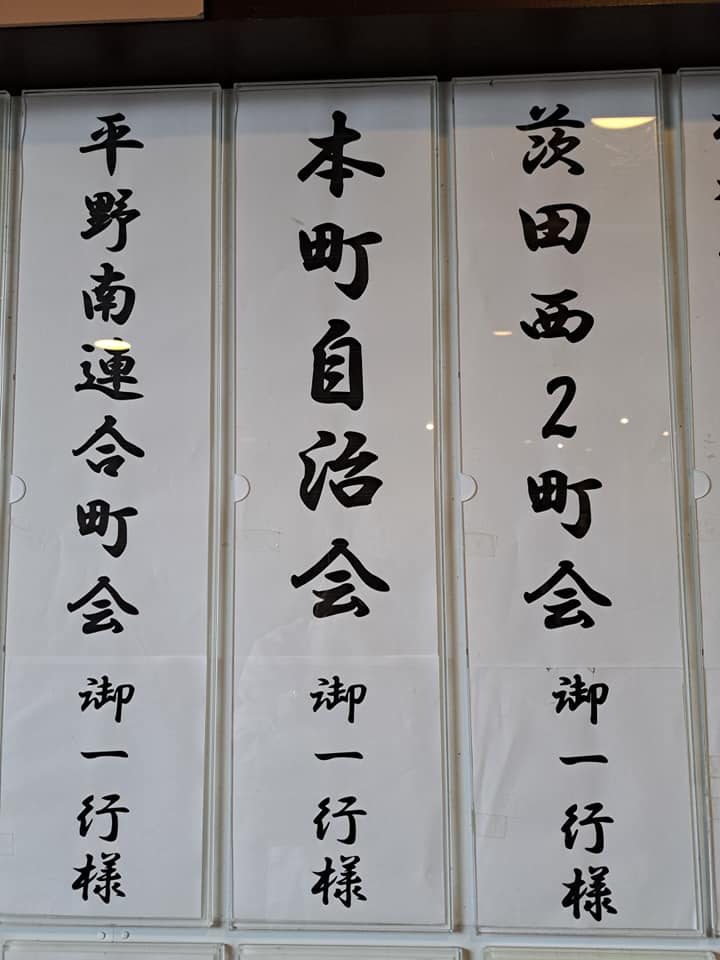 茨田西2町会 御一行様
本町自治会 御一行様
平野南連合町会 御一行様